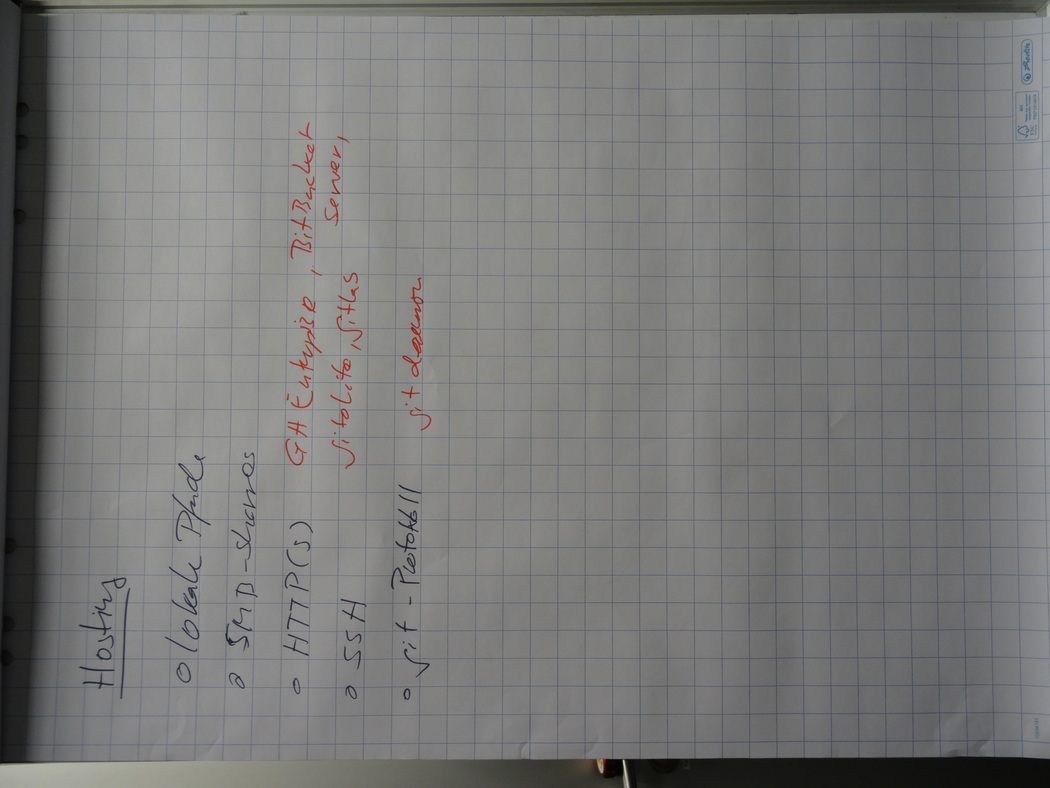 Hosting
o lokale Pfade
o SMB-Shares
o HTTP(s) GH Enterprise, BitBucket Server,
o SSH gitolite, gitLab
o git-Protokoll git daemon
FSC
herlitz